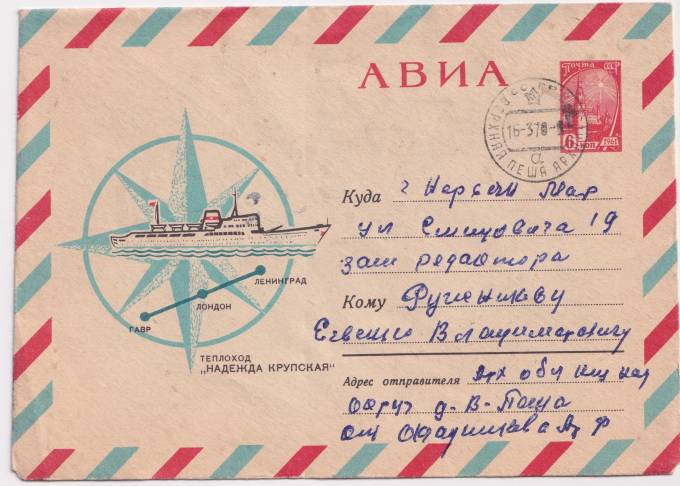 АВИА
Почта СССР
6 КОП 1961
ВЕРХНЯЯ ПЕША АРХ
16-3 70-
а
Куда г Нарьян Мар
ул Смидовича 19
зам редактора
Кому
Евгению Владимировичу
Адрес отправителя Арх обл
округ д. В-Пеша
от
ЛЕНИНГРАД
ЛОНДОН
ГАВР
ТЕПЛОХОД
„НАДЕЖДА КРУПСКАЯ"